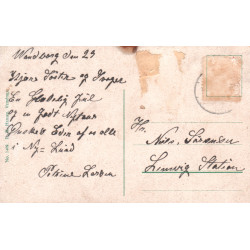 Wandborg den 23
Kjære Søster og Svoger
En Glædelig Jul
og en Godt Nytaar
Ønskes Eder af os alle
i Ny-Lund
Petrine Larsen
Hr.
Niels Sørensen
Lemvig Station